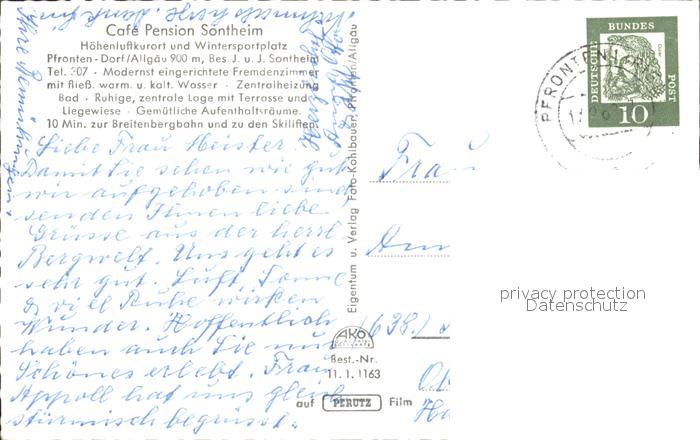 Café Pension Sontheim
Höhenluftkurort und Wintersportplatz
Pfronten-Dorf/Allgäu 900 m, Bes. J. u. J. Sontheim
Tel. 307 · Modernst eingerichtete Fremdenzimmer
mit fließ. warm. u. kalt. Wasser · Zentralheizung
Bad · Ruhige, zentrale Lage mit Terrasse und
Liegewiese · Gemütliche Aufenthaltsräume.
10 Min. zur Breitenbergbahn und zu den Skiliften.
Liebe Frau Heister!
Damit Sie sehen wie gut
wir aufgehoben sind,
senden Ihnen liebe
Grüsse aus der herrl
Bergwelt. Uns geht es
sehr gut. Luft, Sonne
& viel Ruhe wirken
Wunder. Hoffentlich
haben auch Sie nur
Schönes erlebt. Frau
Appoll hat uns gleich
stürmisch begrüsst.
Ihre Bemühungen.
Eigentum u. Verlag Foto-Kohlbauer, Pfronten/Allgäu
AKO
Best.-Nr.
11.1.1163
auf PERUTZ Film
DEUTSCHE BUNDES POST
10
PFRONTEN
Frau
(638.)
privacy protection
Datenschutz